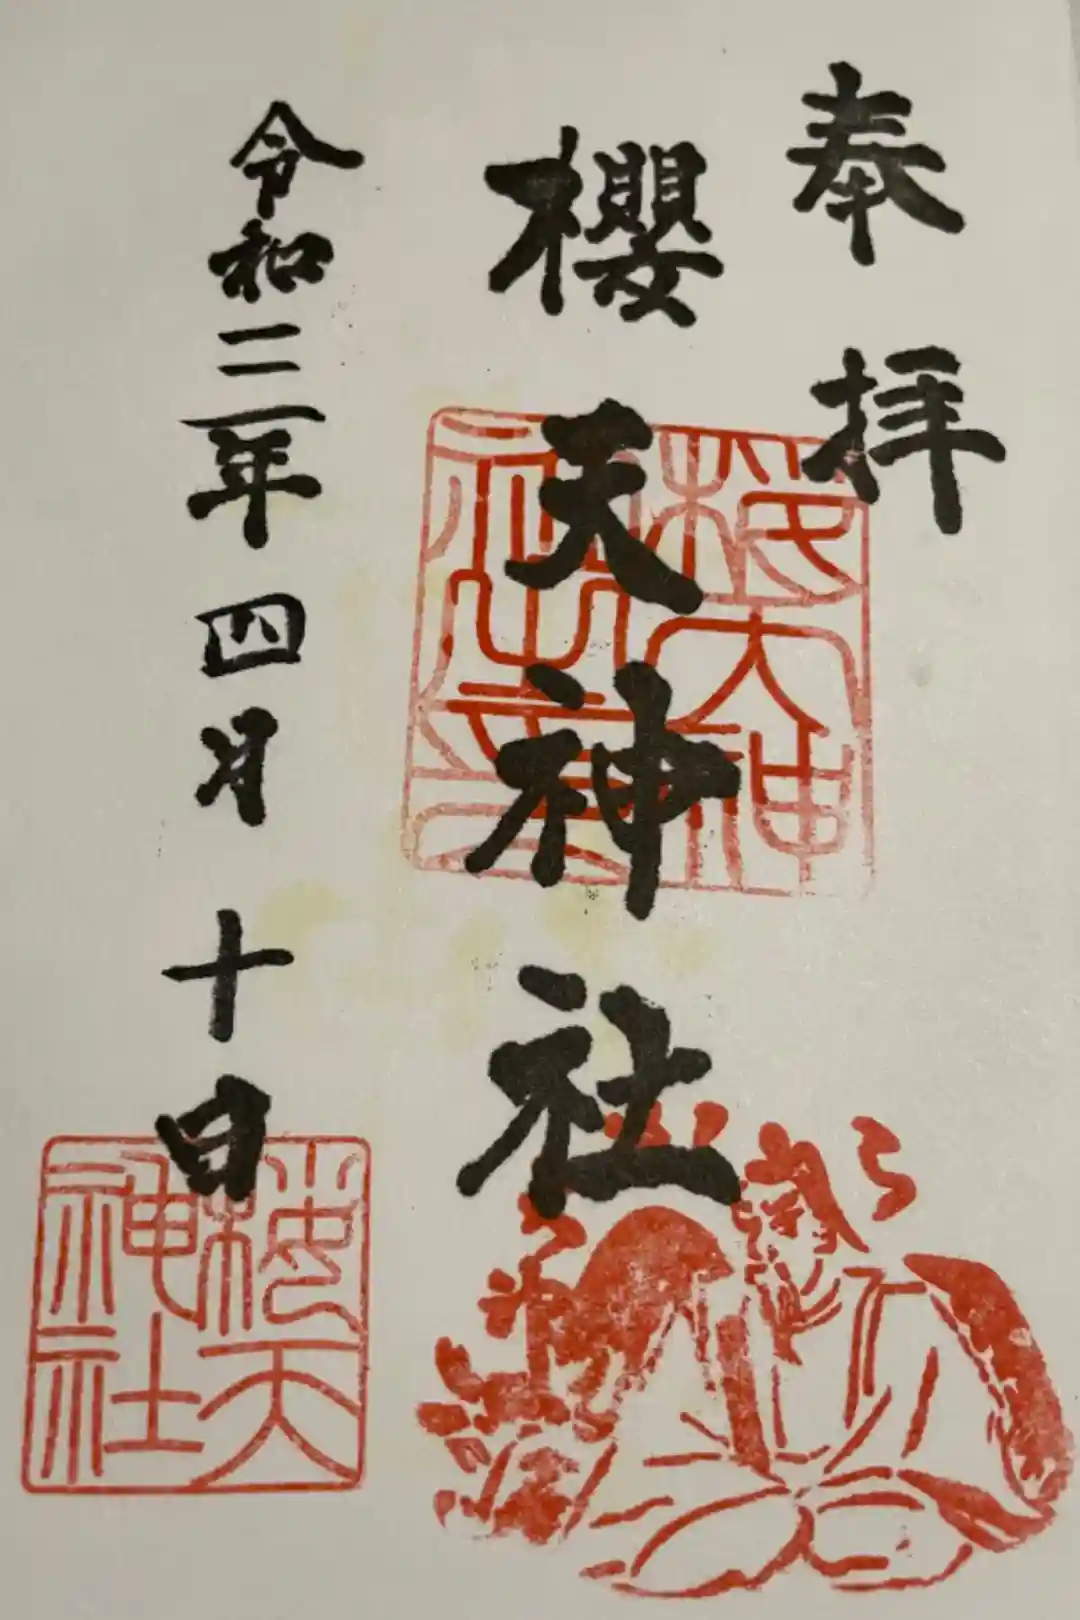 奉拝
櫻天神社
令和三年四月十日
桜天神
社之
桜天
神社